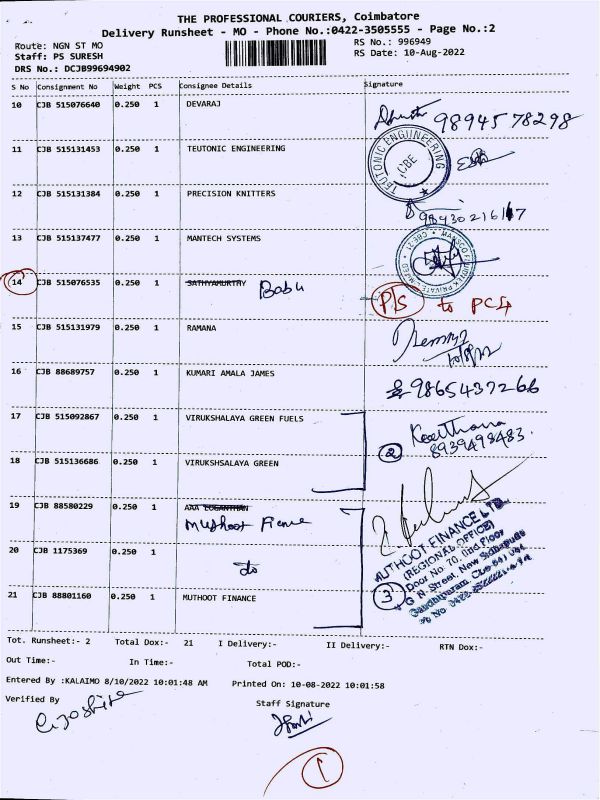 THE PROFESSIONAL COURIERS, Coimbatore
Delivery Runsheet - MO - Phone No.:0422-3505555 - Page No.:2
Route: NGN ST MO RS No.: 996949
Staff: PS SURESH RS Date: 10-Aug-2022
DRS No.: DCJB99694902
S No Consignment No Weight PCS Consignee Details Signature
10 CJB 515076640 0.250 1 DEVARAJ 9894578298
11 CJB 515131453 0.250 1 TEUTONIC ENGINEERING TEUTONIC ENGIINEERING CBE
12 CJB 515131384 0.250 1 PRECISION KNITTERS 98430216117
13 CJB 515137477 0.250 1 MANTECH SYSTEMS
14 CJB 515076535 0.250 1 SATHYAMURTHY Babu P/S to PC4
15 CJB 515131979 0.250 1 RAMANA
16 CJB 88689757 0.250 1 KUMARI AMALA JAMES 9865437266
17 CJB 515092867 0.250 1 VIRUKSHALAYA GREEN FUELS Keerthana
2 8939498483.
18 CJB 515136686 0.250 1 VIRUKSHSALAYA GREEN
19 CJB 88580229 0.250 1 AAA LOGANTHAN
Muthoot Finance
20 CJB 1175369 0.250 1 do
MUTHOOT FINANCE LTD
(REGIONAL OFFICE)
Door No. 70, IInd Floor
3 G N-Street, New Sidhapudur
21 CJB 88801160 0.250 1 MUTHOOT FINANCE
Tot. Runsheet:- 2 Total Dox:- 21 I Delivery:- II Delivery:- RTN Dox:-
Out Time:- In Time:- Total POD:-
Entered By :KALAIMO 8/10/2022 10:01:48 AM Printed On: 10-08-2022 10:01:58
Verified By Staff Signature
1